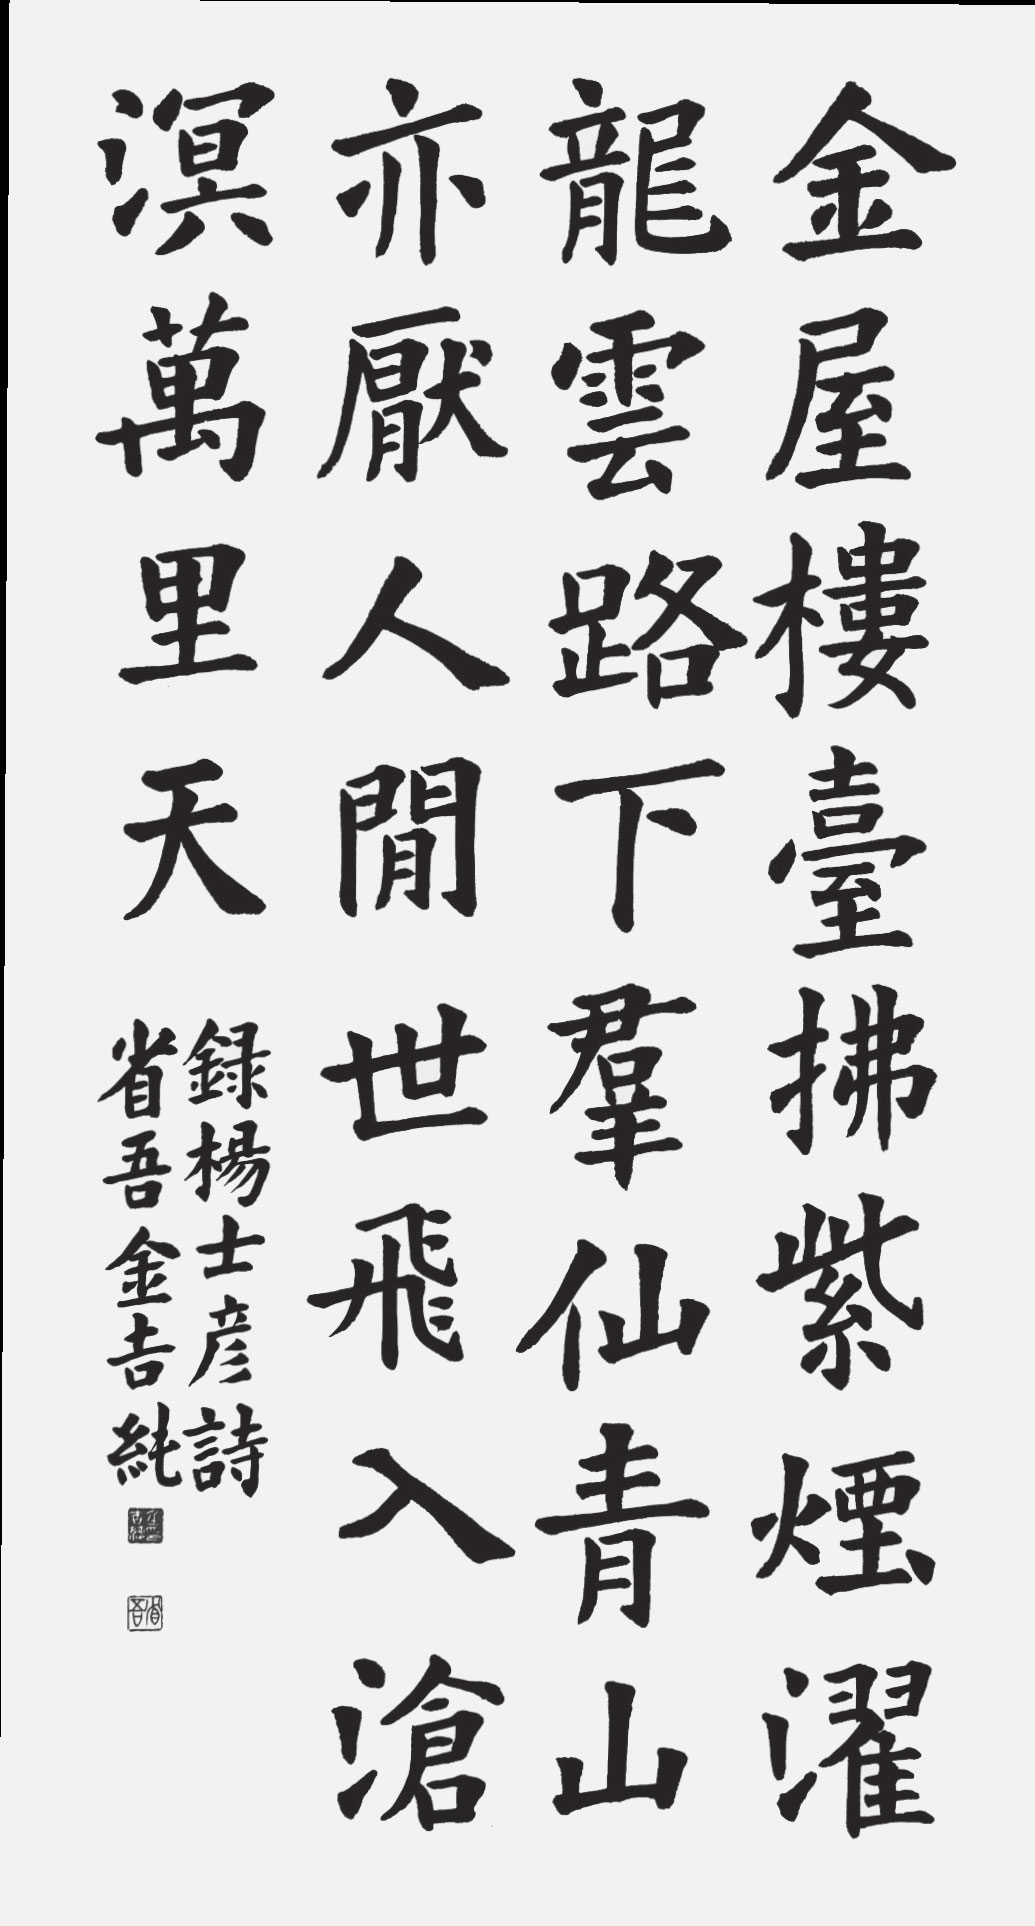 金屋樓臺拂紫煙濯
龍雲路下羣仙青山
亦厭人間世飛入滄
溟萬里天
録楊士彦詩
省吾金吉純
省吾